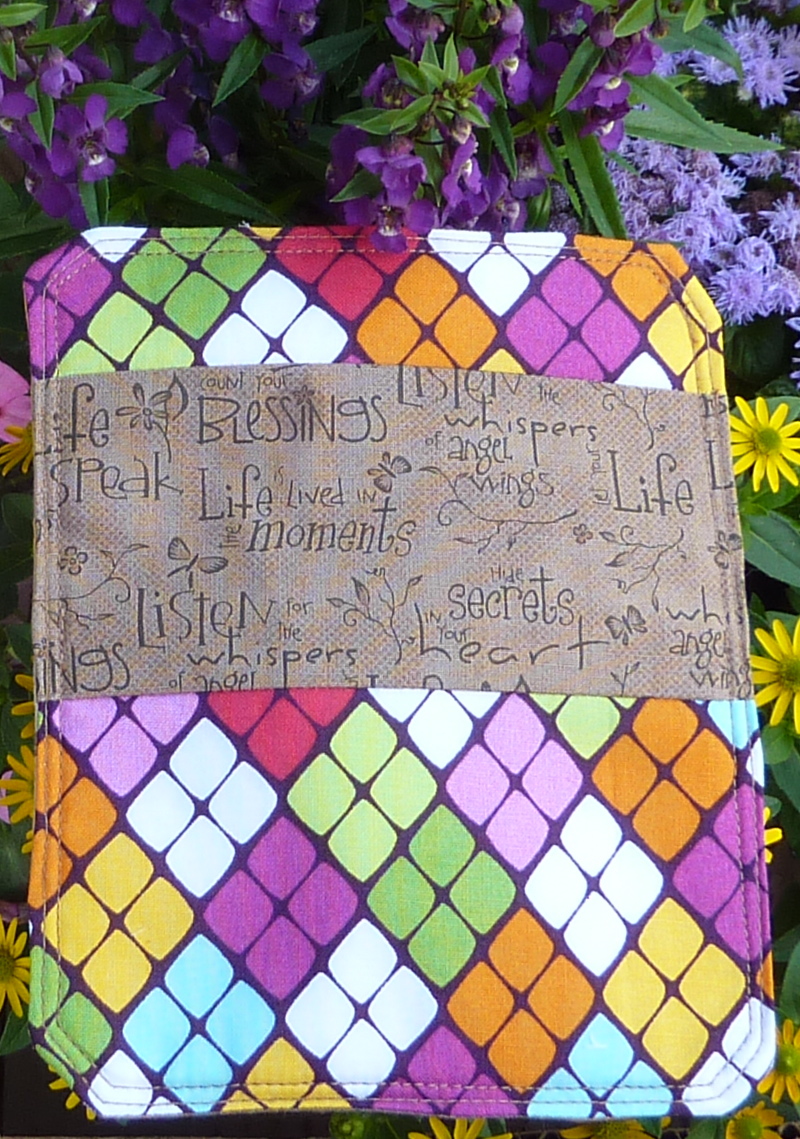 Life
COUNT YOUR
BLESSINGS
LISTEN the
whispers
of angel
wings
SPeak
Life is Lived IN
the moments
IN your Life
L
LISTEN for
the
whispers
of angel
INGS
Hide
secrets
IN
Your
heart
whis
angel
wing